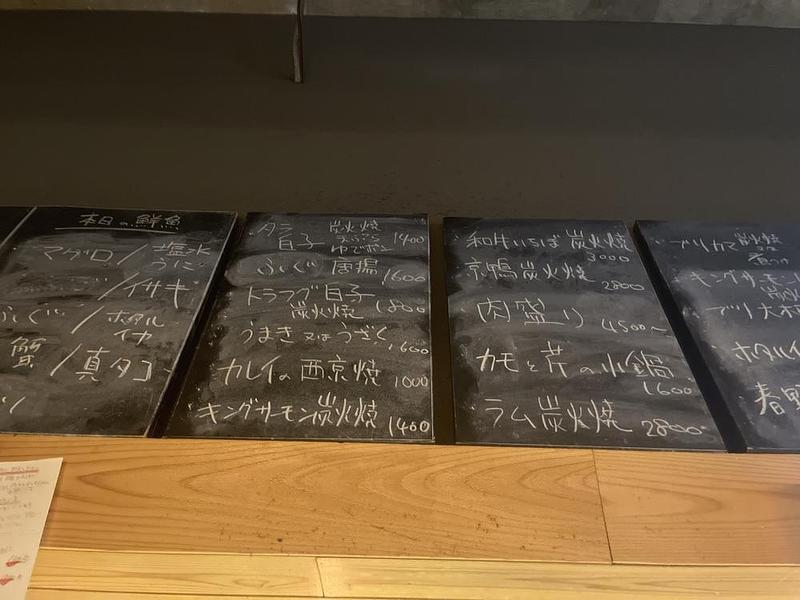 本日の鮮魚
マグロ/塩水うに
/イサキ
ふぐ/ホタルイカ
蟹/真タコ
タラ白子 炭火焼 天ぷら ゆでポン 1400
ふぐ 唐揚 1600
トラフグ白子 炭火焼 1800
うまき又はうざく 1600
カレイの西京焼 1000
キングサーモン炭火焼 1400
和牛いちぼ炭火焼 3000
京鴨炭火焼 2800
肉盛り 4500〜
カモと芹の小鍋 1600
ラム炭火焼 2800
ブリカマ 炭火焼
キングサーモン
ブリ大
ホタルイ
春野